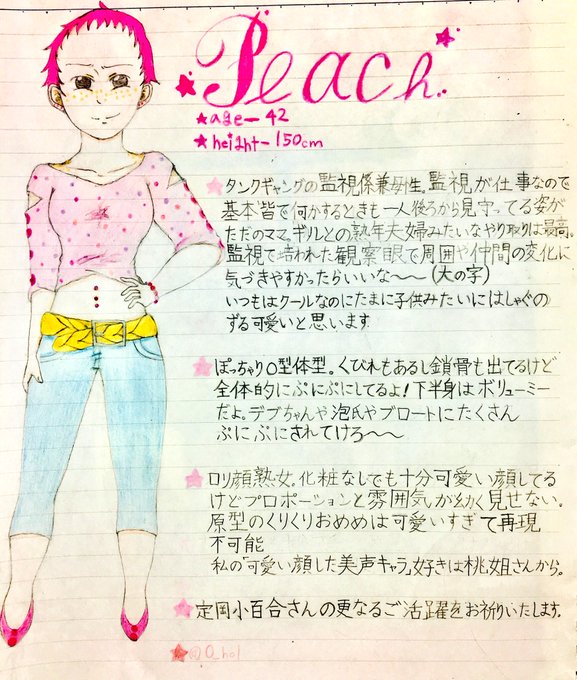 Peach.
★age-42
★height-150cm
★タンクギャングの監視係兼母性。監視が仕事なので
基本皆で何かするときも一人後ろから見守ってる姿が
ただのママ。ギルとの熟年夫婦みたいなやり取りは最高。
監視で培われた観察眼で周囲や仲間の変化に
気づきやすかったらいいな〜〜(大の字)
いつもはクールなのにたまに子供みたいにはしゃぐの
ずる可愛いと思います
★ぽっちゃりO型体型。くびれもあるし鎖骨も出てるけど
全体的にぷにぷにしてるよ!下半身はボリューミー
だよ。デブちゃんや泡氏やブロートにたくさん
ぷにぷにされてけろ〜〜
★ロリ顔熟女。化粧なしでも十分可愛い顔してる
けどプロポーションと雰囲気が幼く見せない。
原型のくりくりおめめは可愛いすぎて再現
不可能
私の「可愛い顔した美声キャラ」好きは桃姐さんから。
★定岡小百合さんの更なるご活躍をお祈りいたします。